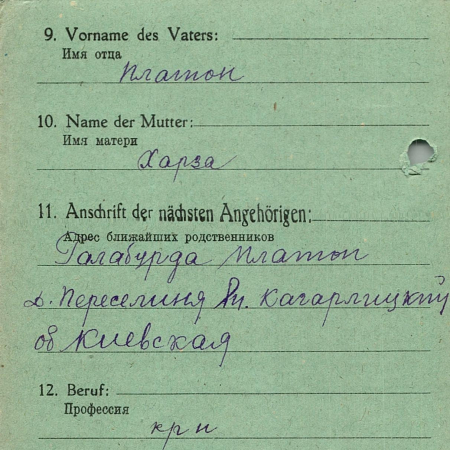 9. Vorname des Vaters:
Имя отца
Платон
10. Name der Mutter:
Имя матери
Харза
11. Anschrift der nächsten Angehörigen:
Адрес ближайших родственников
Галабурда Платон
д. Переселиня Рн. Кагарлицкий
об Киевская
12. Beruf:
Профессия
кр н